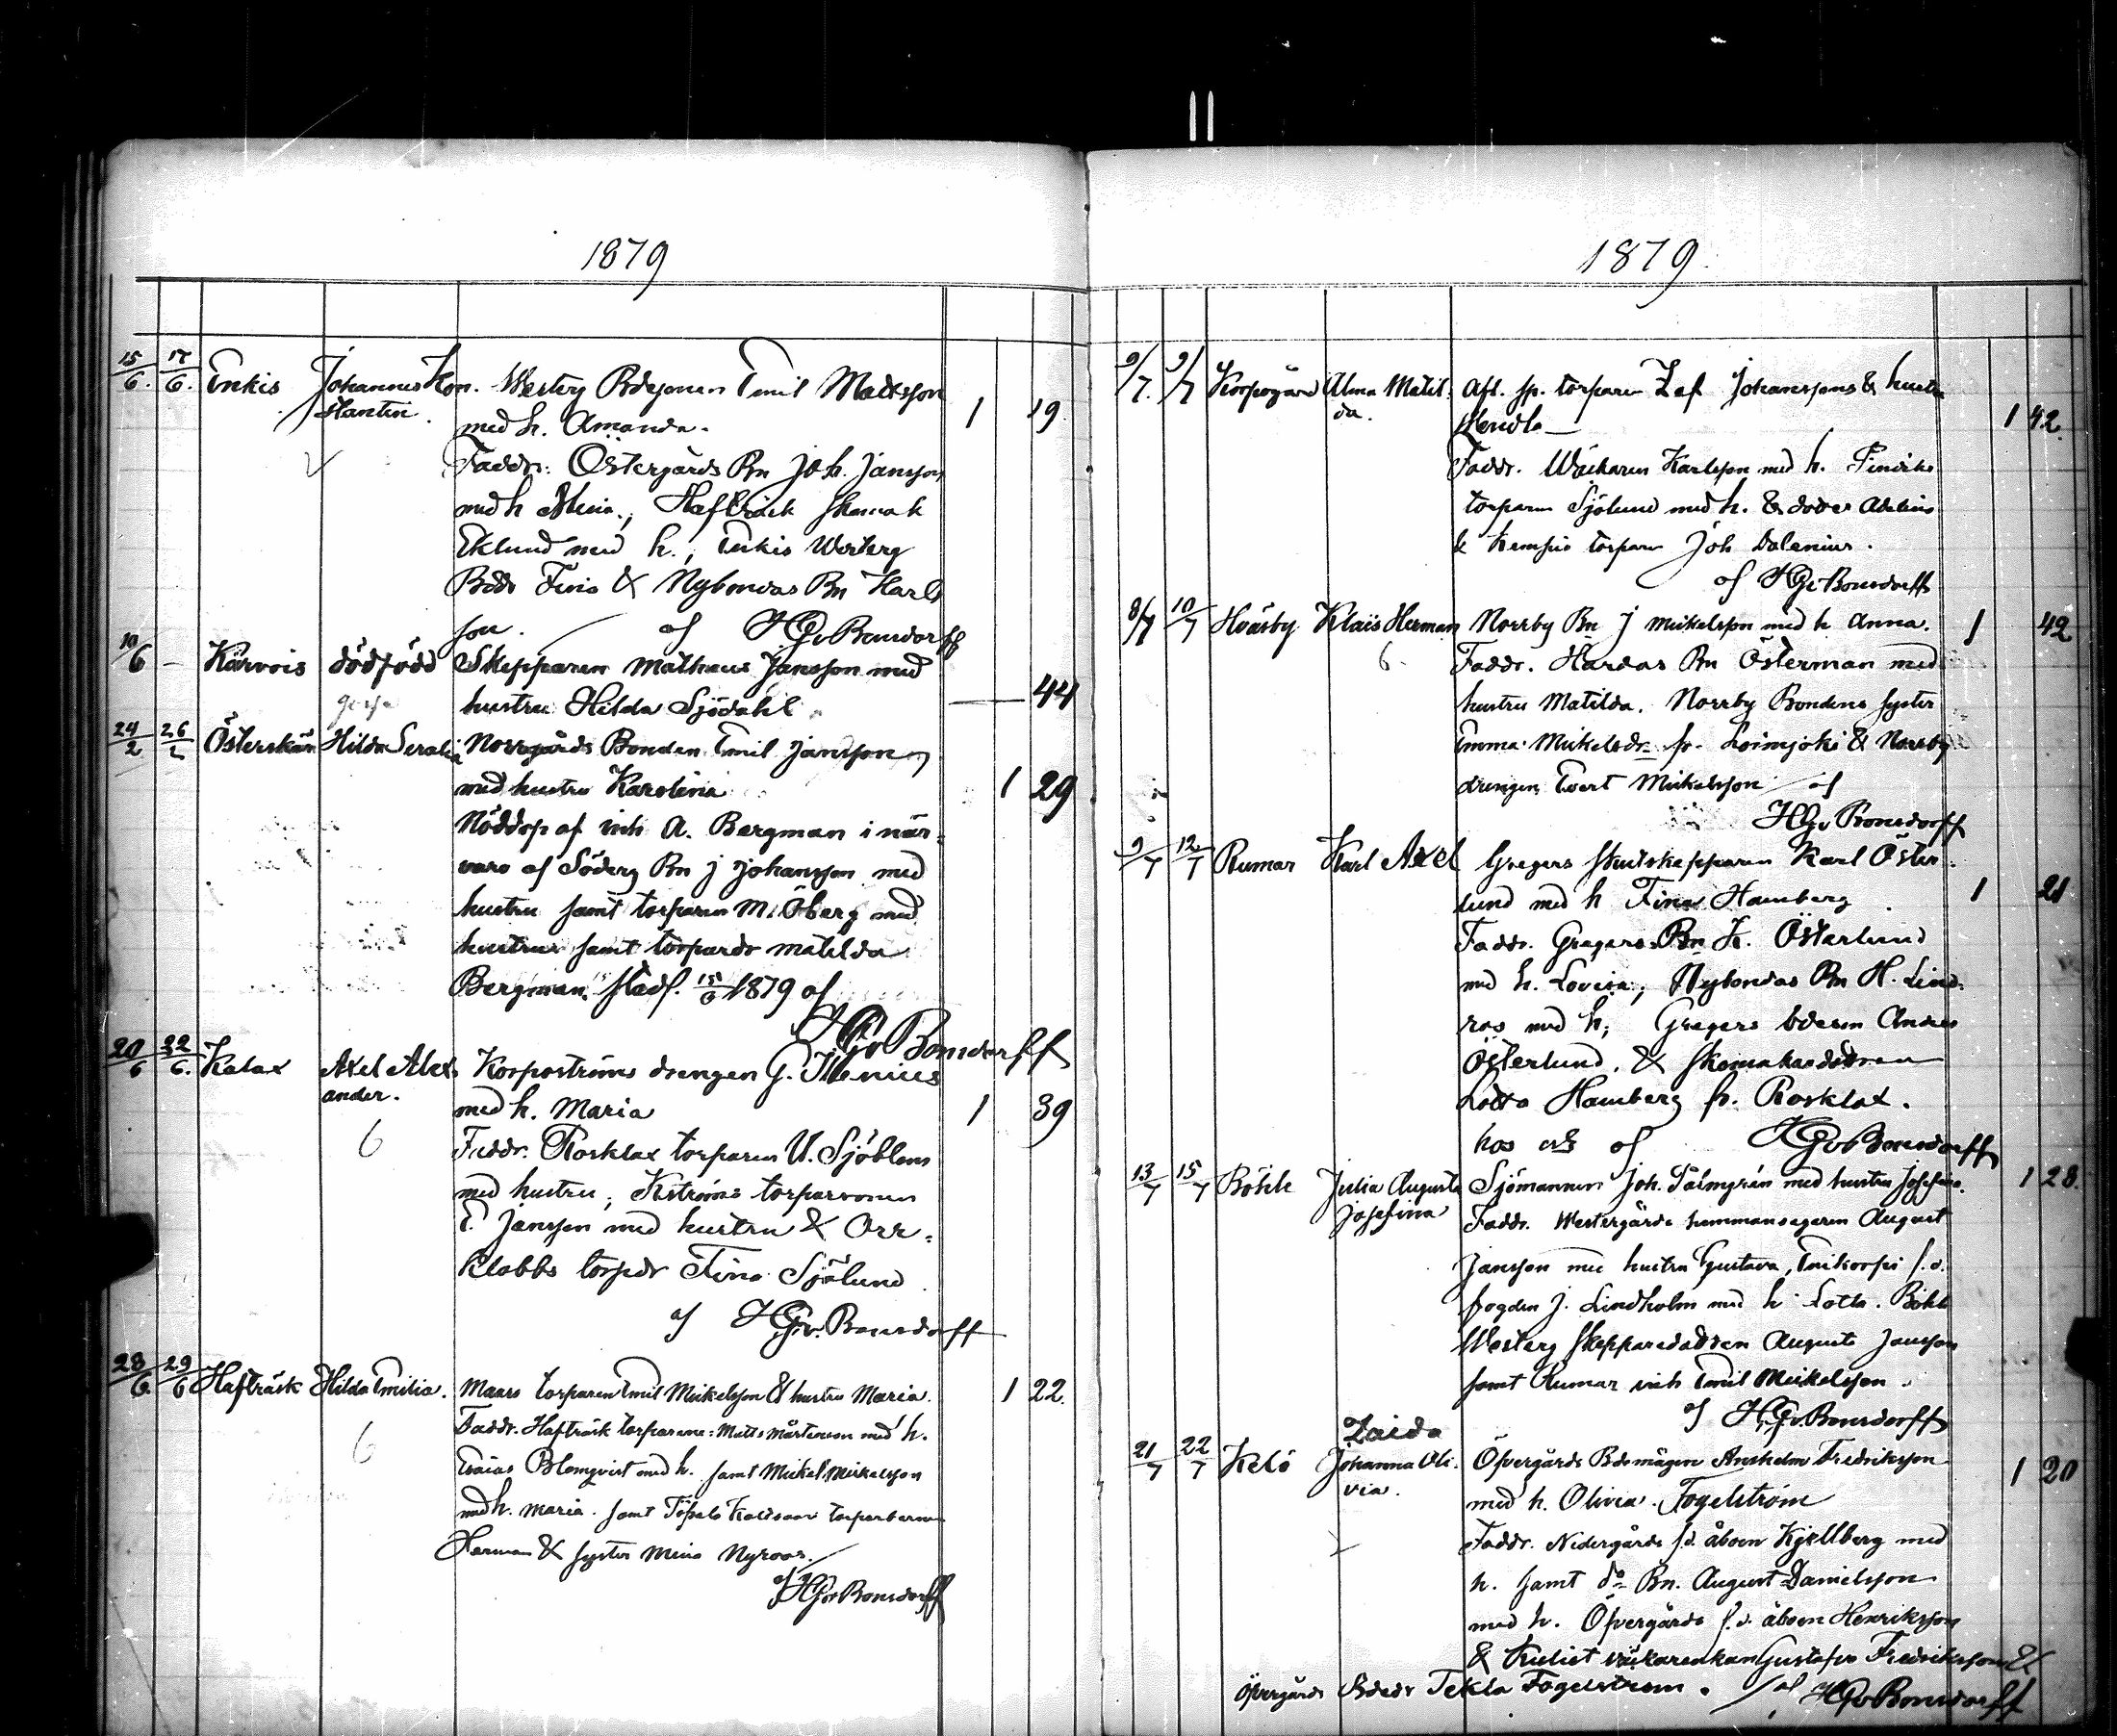 1879
15/6. 17/6. Enkis Johannes Kon. Westerg Bdesonen Emil Mattsson
stantin. med h. Amanda. 1 19
Faddr. Östergårds Bn Joh. Jansson
med h Mina, Hafträsk skomak
Eklund med h., Enkis Westerg
Bddr Fina & Nybondas Bn Karls
son. af HGvBonsdorff
10/6 – Kärvois dödfödd Skepparen Matheus Jansson med
gosse hustru Hilda Sjödahl 44
24/2 26/2 Österskär Hilda Serafia Norrgårds Bonden Emil Jansson
med hustru Karolina 1 29
Nöddop af inh A. Bergman i när-
varo af Söderg Bn J Johansson med
hustru samt torparen M. Öberg med
hustru samt torpardr Matilda
Bergman. stadf. 15/6 1879 af
HGvBonsdorff
20/6 22/6. Kalax Axel Alex- Korpoströms drengen G.
ander. med h. Maria 1 39
6 Faddr. Rosklax torparen U. Sjöblom
med hustru, Kströms torparsonen
E. Jansson med hustru & Orr-
klobbs torpdr Fina Sjölund
af HGv.Bonsdorff
28/6 29/6 Hafträsk Hilda Emilia. Maars torparen Emil Mickelsson & hustru Maria. 1 22.
Faddr. Hafträsk torparene: Matts Mårtensson med h.
6 Esaias Blomqvist med h. samt Mickel Mickelsson
med h. Maria. samt torparbarnen
Herman & syster Mina Nyroos.
af HGvBonsdorff
1879.
9/7. 9/7 Korpogård Alma Matil- Afl. sp. torparen Johanssons & hustru
da. Hendla 1 42.
Faddr. Wäckaren Karlsson med h.
torparen Sjölund med h. & dotter Adelina
& torpare Joh Dalenius.
af HGvBonsdorff
8/7 10/7 Hväsby Klais Herman Norrby Bn J Mickelsson med h Anna. 1 42
6 Faddr. Hardas Bn Österman med
hustru Matilda. Norrby Bondens syster
Emma Mickelsdr fr. Loimjoki & Norrby
drengen Evert Mickelsson af
HGvBonsdorff
9/7 12/7 Rumar Karl Axel Gregers skutskepparen Karl Öster-
lund med h Fina Hamberg 1 21
Faddr. Gregers Bn K. Österlund
med h. Lovisa, Nybondas Bn H. Lind-
ros med h, Gregers bdesn Anders
Österlund. & skomakardottren
Lotta Hamberg fr. Rosklax.
hos af HGvBonsdorff
13/7 15/7 Bökle Julia Augusta Sjömannen Joh. Palmgrén med hustru Josefina. 1 28.
Josefina Faddr. Westergårds hemmansegaren August
Jansson med hustru Gustava, f.d.
fogden J. Lindholm med h Lotta. Bökle
Westerg skepparedottren Augusta Jansson
samt Rumar inh Emil Mickelsson.
af HGvBonsdorff
Zaida
21/7 22/7 Kelö Johanna Oli- Öfvergårds Bdemågen Anshelm Fredriksson 1 20
via. med h. Olivia Fogelström
Faddr. Nedergårds f.d. åboen Kjellberg med
h. samt do Bn. August Danielsson
med h. Öfvergårds f.d. åboen Henriksson
& Gustafva Fredriksson &
Öfvergårds Bdedr Tekla Fogelström. af HGvBonsdorff